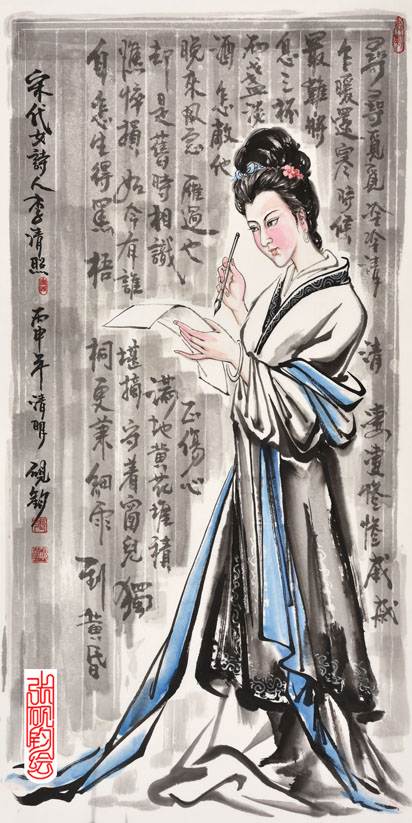 尋尋覓覓冷冷清清凄凄慘慘戚戚
乍暖還寒時候
最難將
息三杯
兩盞淡
酒怎敵他
晚來風急雁過也正傷心
却是舊時相識滿地黄花堆積
憔悴損如今有誰堪摘守着窗兒獨
自怎生得黑梧桐更兼細雨到黄昏
宋代女詩人李清照丙申年清明硯鈞